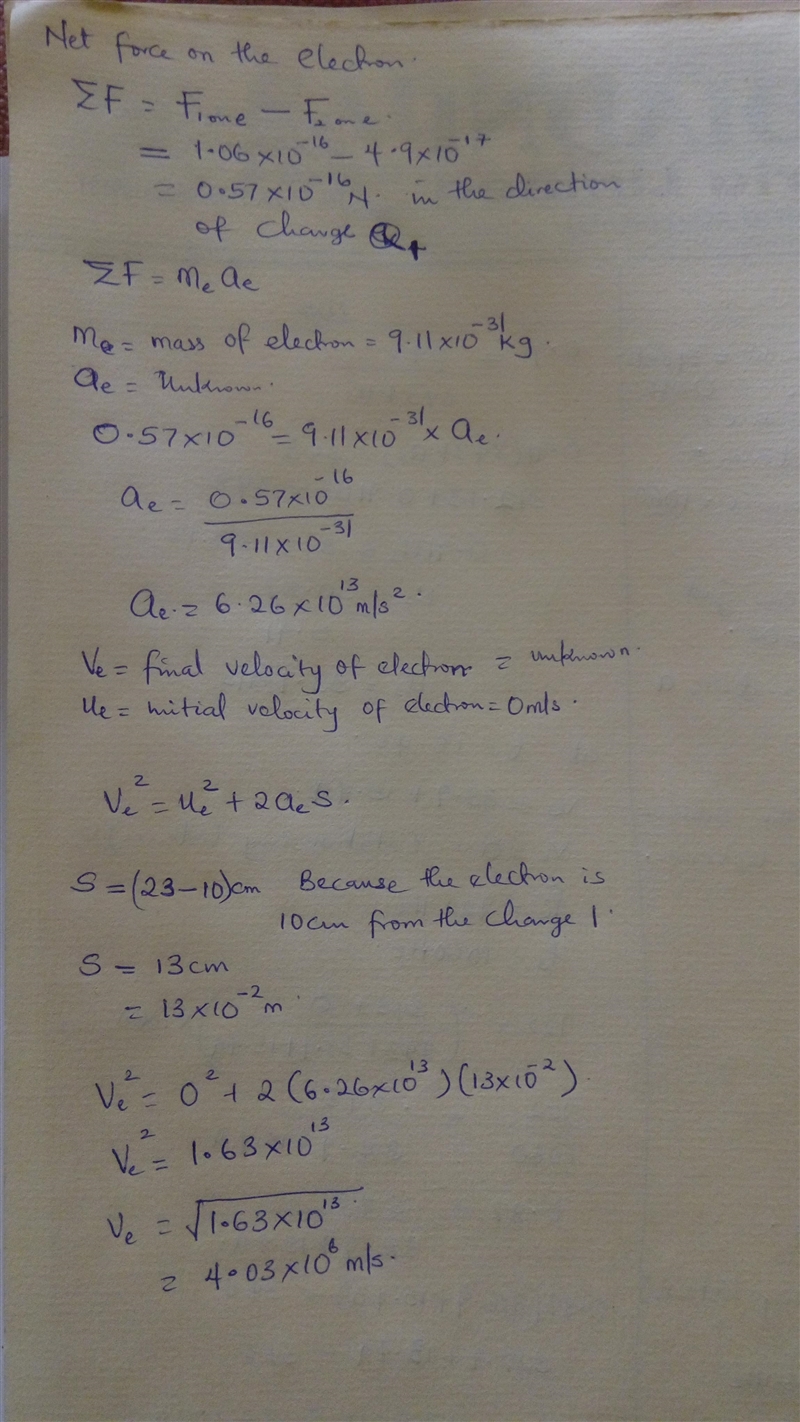 Net force on the electron.
ΣF = F1one − F2one.
= 1.06×10⁻¹⁶ − 4.9×10⁻¹⁷
= 0.57×10⁻¹⁶ N. in the direction
of charge Q₁
ΣF = mₑ aₑ
mₑ = mass of electron = 9.11×10⁻³¹ kg.
aₑ = Unknown.
0.57×10⁻¹⁶ = 9.11×10⁻³¹ × aₑ.
aₑ = 0.57×10⁻¹⁶
9.11×10⁻³¹
aₑ = 6.26×10¹³ m/s².
Vₑ = final velocity of electron = unknown.
uₑ = initial velocity of electron = 0m/s.
Vₑ² = uₑ² + 2aₑS.
S = (23−10)cm Because the electron is
10cm from the charge 1.
S = 13cm
= 13×10⁻² m.
Vₑ² = 0² + 2(6.26×10¹³)(13×10⁻²)
Vₑ² = 1.63×10¹³
Vₑ = √1.63×10¹³
= 4.03×10⁶ m/s.